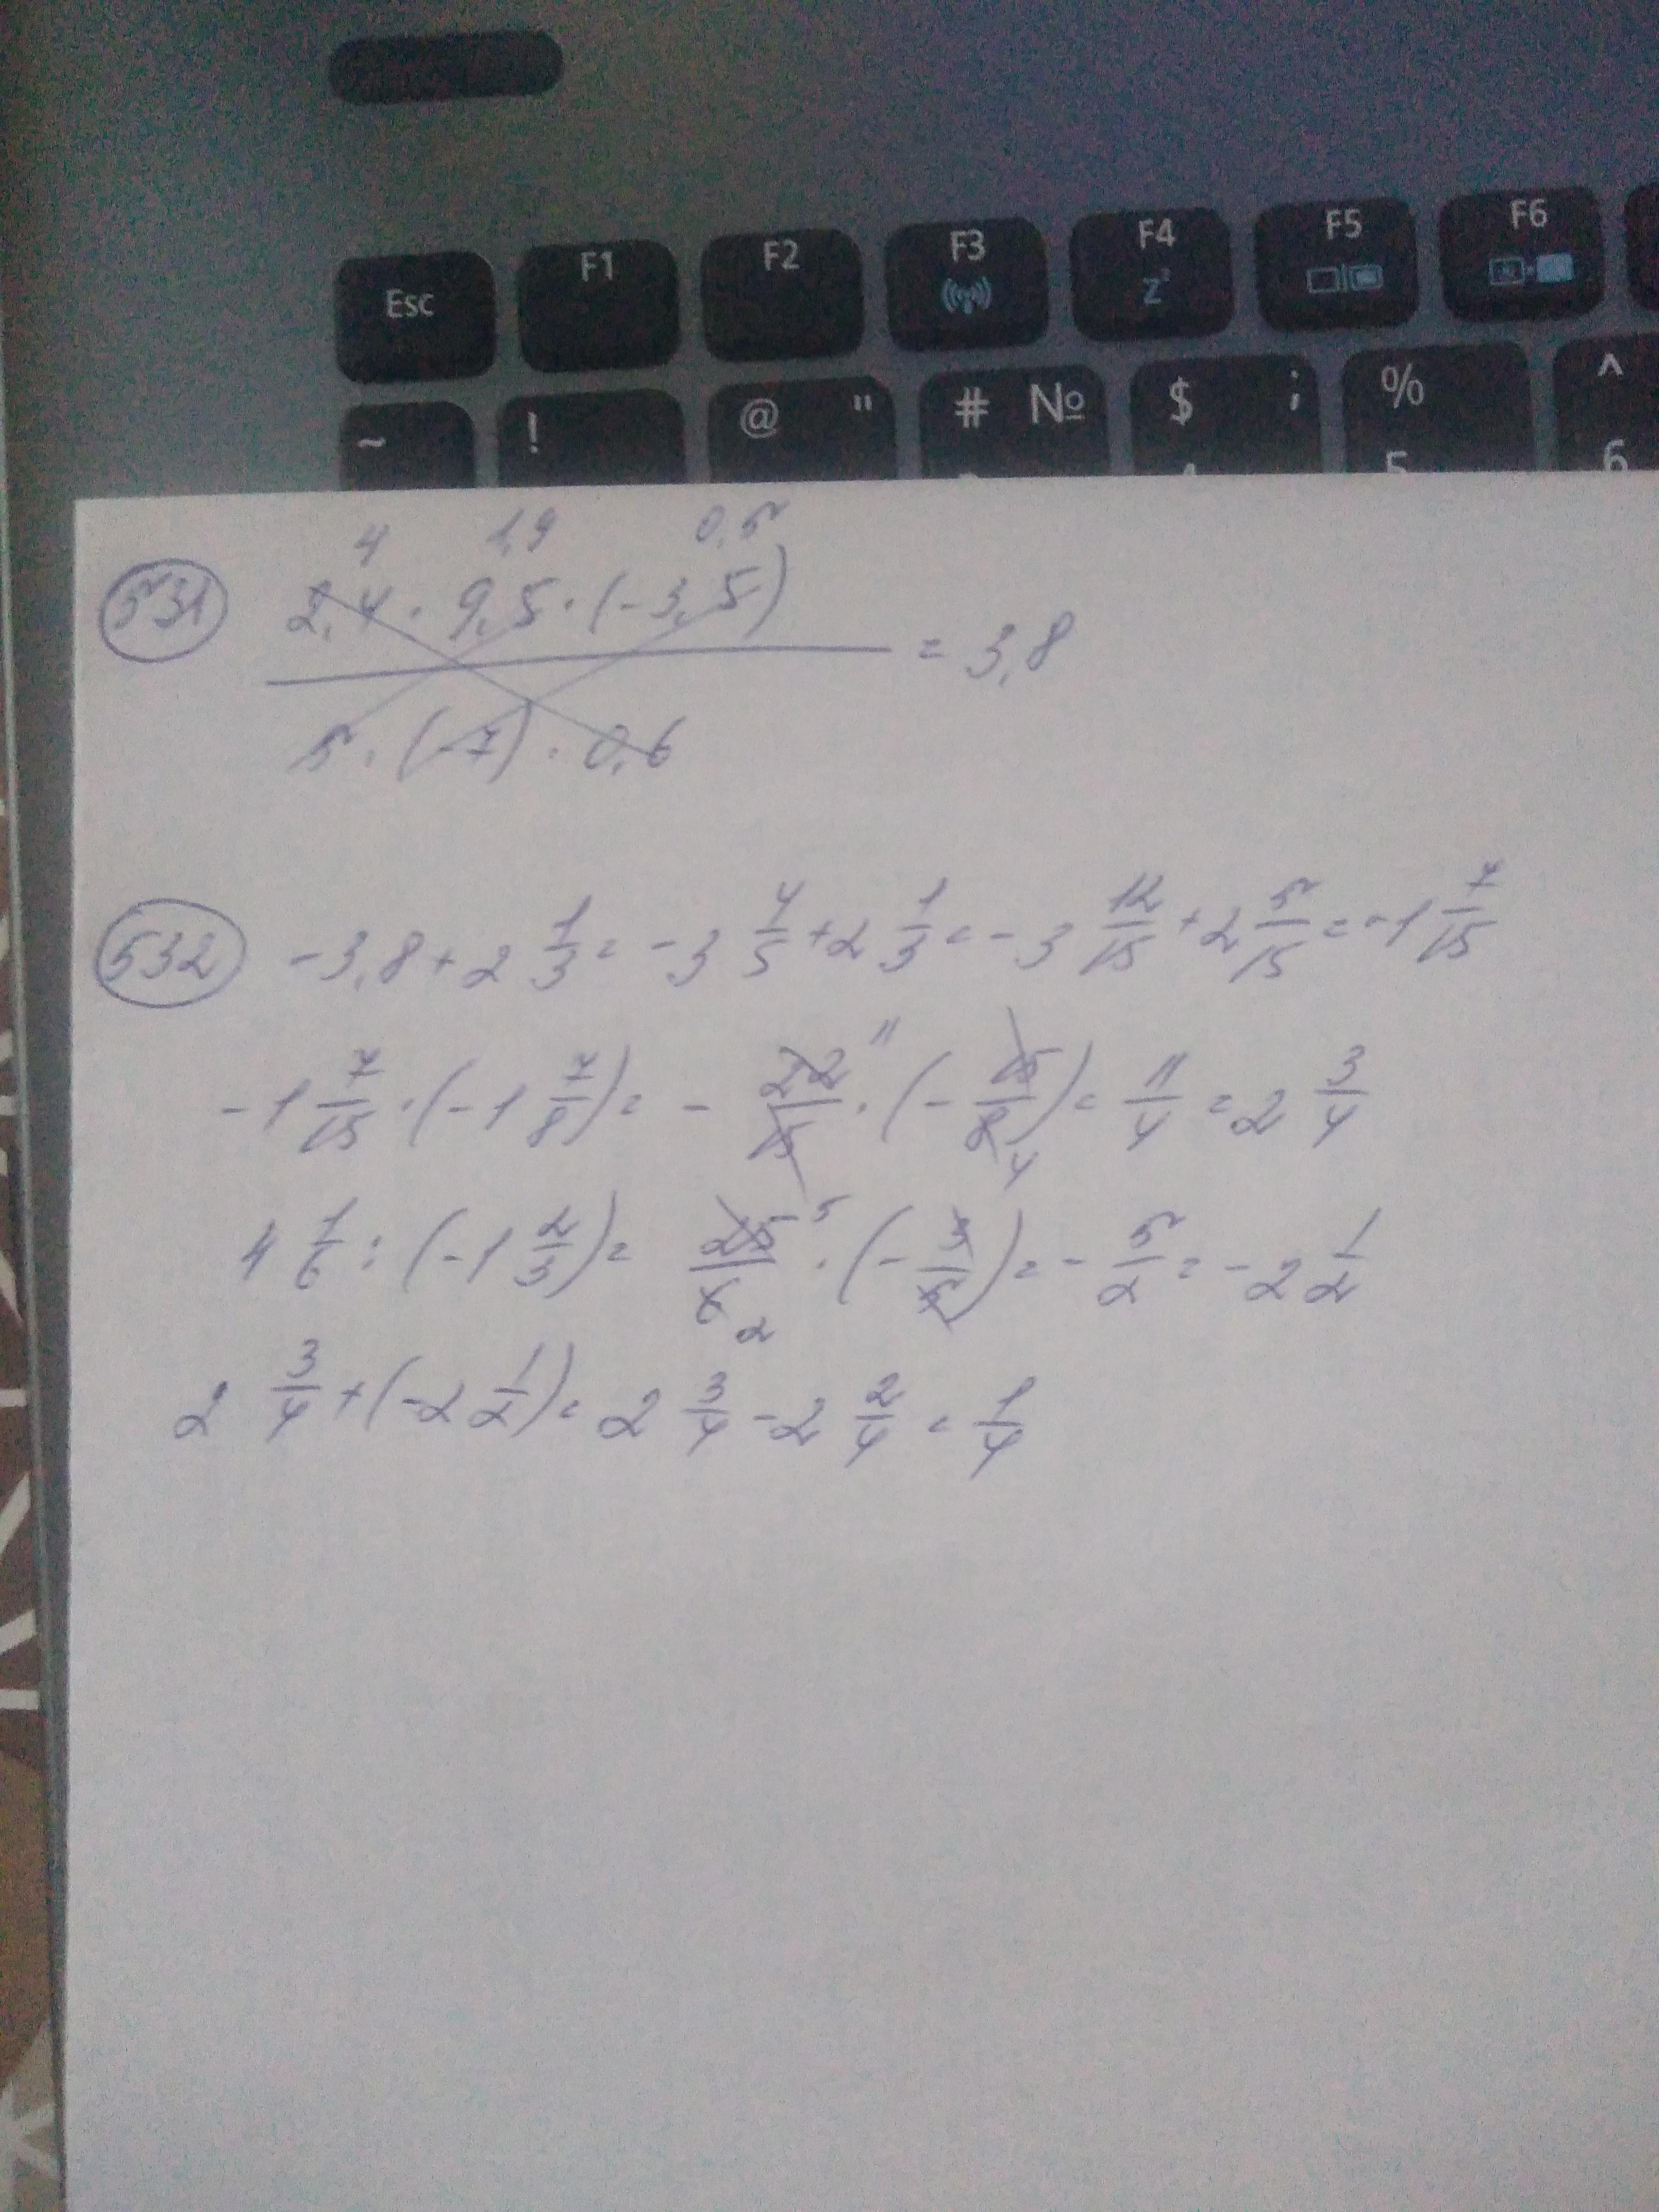 Esc F1 F2 F3 F4 z² F5 F6
~ ! @ " # № $ ; % 5 ^ 6
4 1,9 0,5
531 2,4 · 9,5 · (-3,5)
= 3,8
5 · (-7) · 0,6
532 -3,8 + 2 1/3 = -3 4/5 + 2 1/3 = -3 12/15 + 2 5/15 = -1 7/15
-1 7/15 · (-1 7/8) = - 22/15 11 · (- 15/8 4) = 11/4 = 2 3/4
4 1/6 : (-1 2/3) = 25/6 5 2 · (- 3/5) = - 5/2 = -2 1/2
2 3/4 + (-2 1/2) = 2 3/4 - 2 2/4 = 1/4